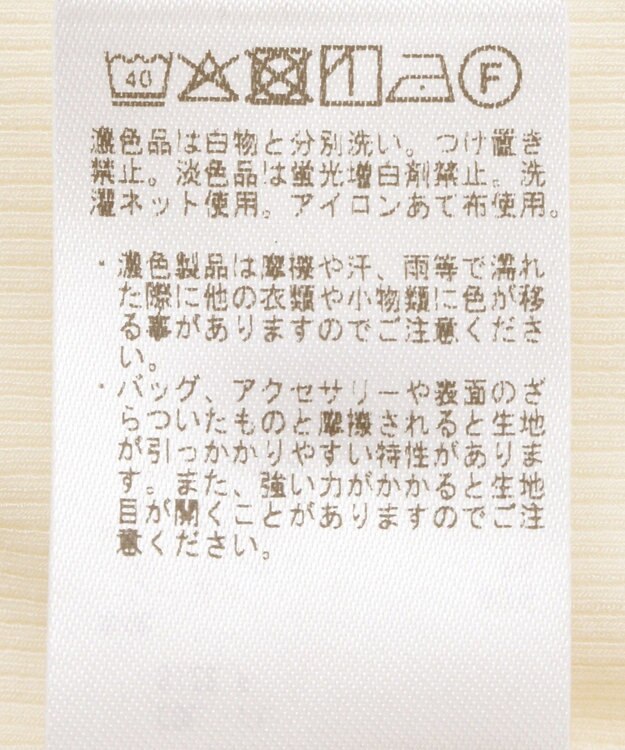 40 F
濃色品は白物と分別洗い。つけ置き
禁止。淡色品は蛍光増白剤禁止。洗
濯ネット使用。アイロンあて布使用。
・濃色製品は摩擦や汗、雨等で濡れ
た際に他の衣類や小物類に色が移
る事がありますのでご注意くださ
い。
・バッグ、アクセサリーや表面のざ
らついたものと摩擦されると生地
が引っかかりやすい特性がありま
す。また、強い力がかかると生地
目が開くことがありますのでご注
意ください。